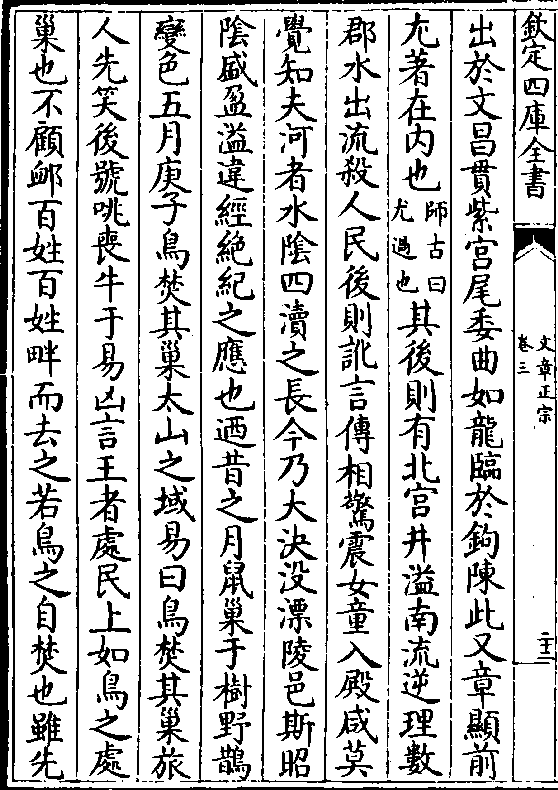 欽定四庫全書
文章正宗
卷三
二十二
出於文昌貫紫宮尾委曲如龍臨於鉤陳此又章顯前
尤著在内也師古曰尤過也其後則有北宮井溢南流逆理數
郡水出流殺人民後則訛言傳相驚震女童入殿咸莫
覺知夫河者水陰四瀆之長今乃大決没漂陵邑斯昭
陰盛盈溢違經絶紀之應也迺昔之月鼠巢于樹野鵲
變色五月庚子鳥焚其巢太山之域易曰鳥焚其巢旅
人先笑後號咷喪牛于易凶言王者處民上如鳥之處
巢也不顧䘏百姓百姓畔而去之若鳥之自焚也雖先